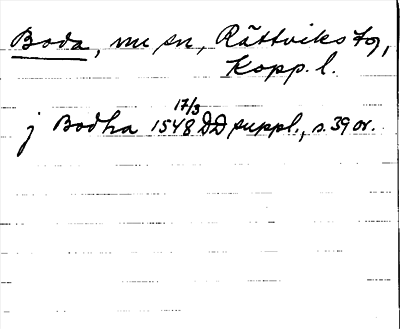 Boda, nu sn, Rättviks tg,
Kopp. l.
17/3
j Bodha 1548 DD suppl., s. 39 or.